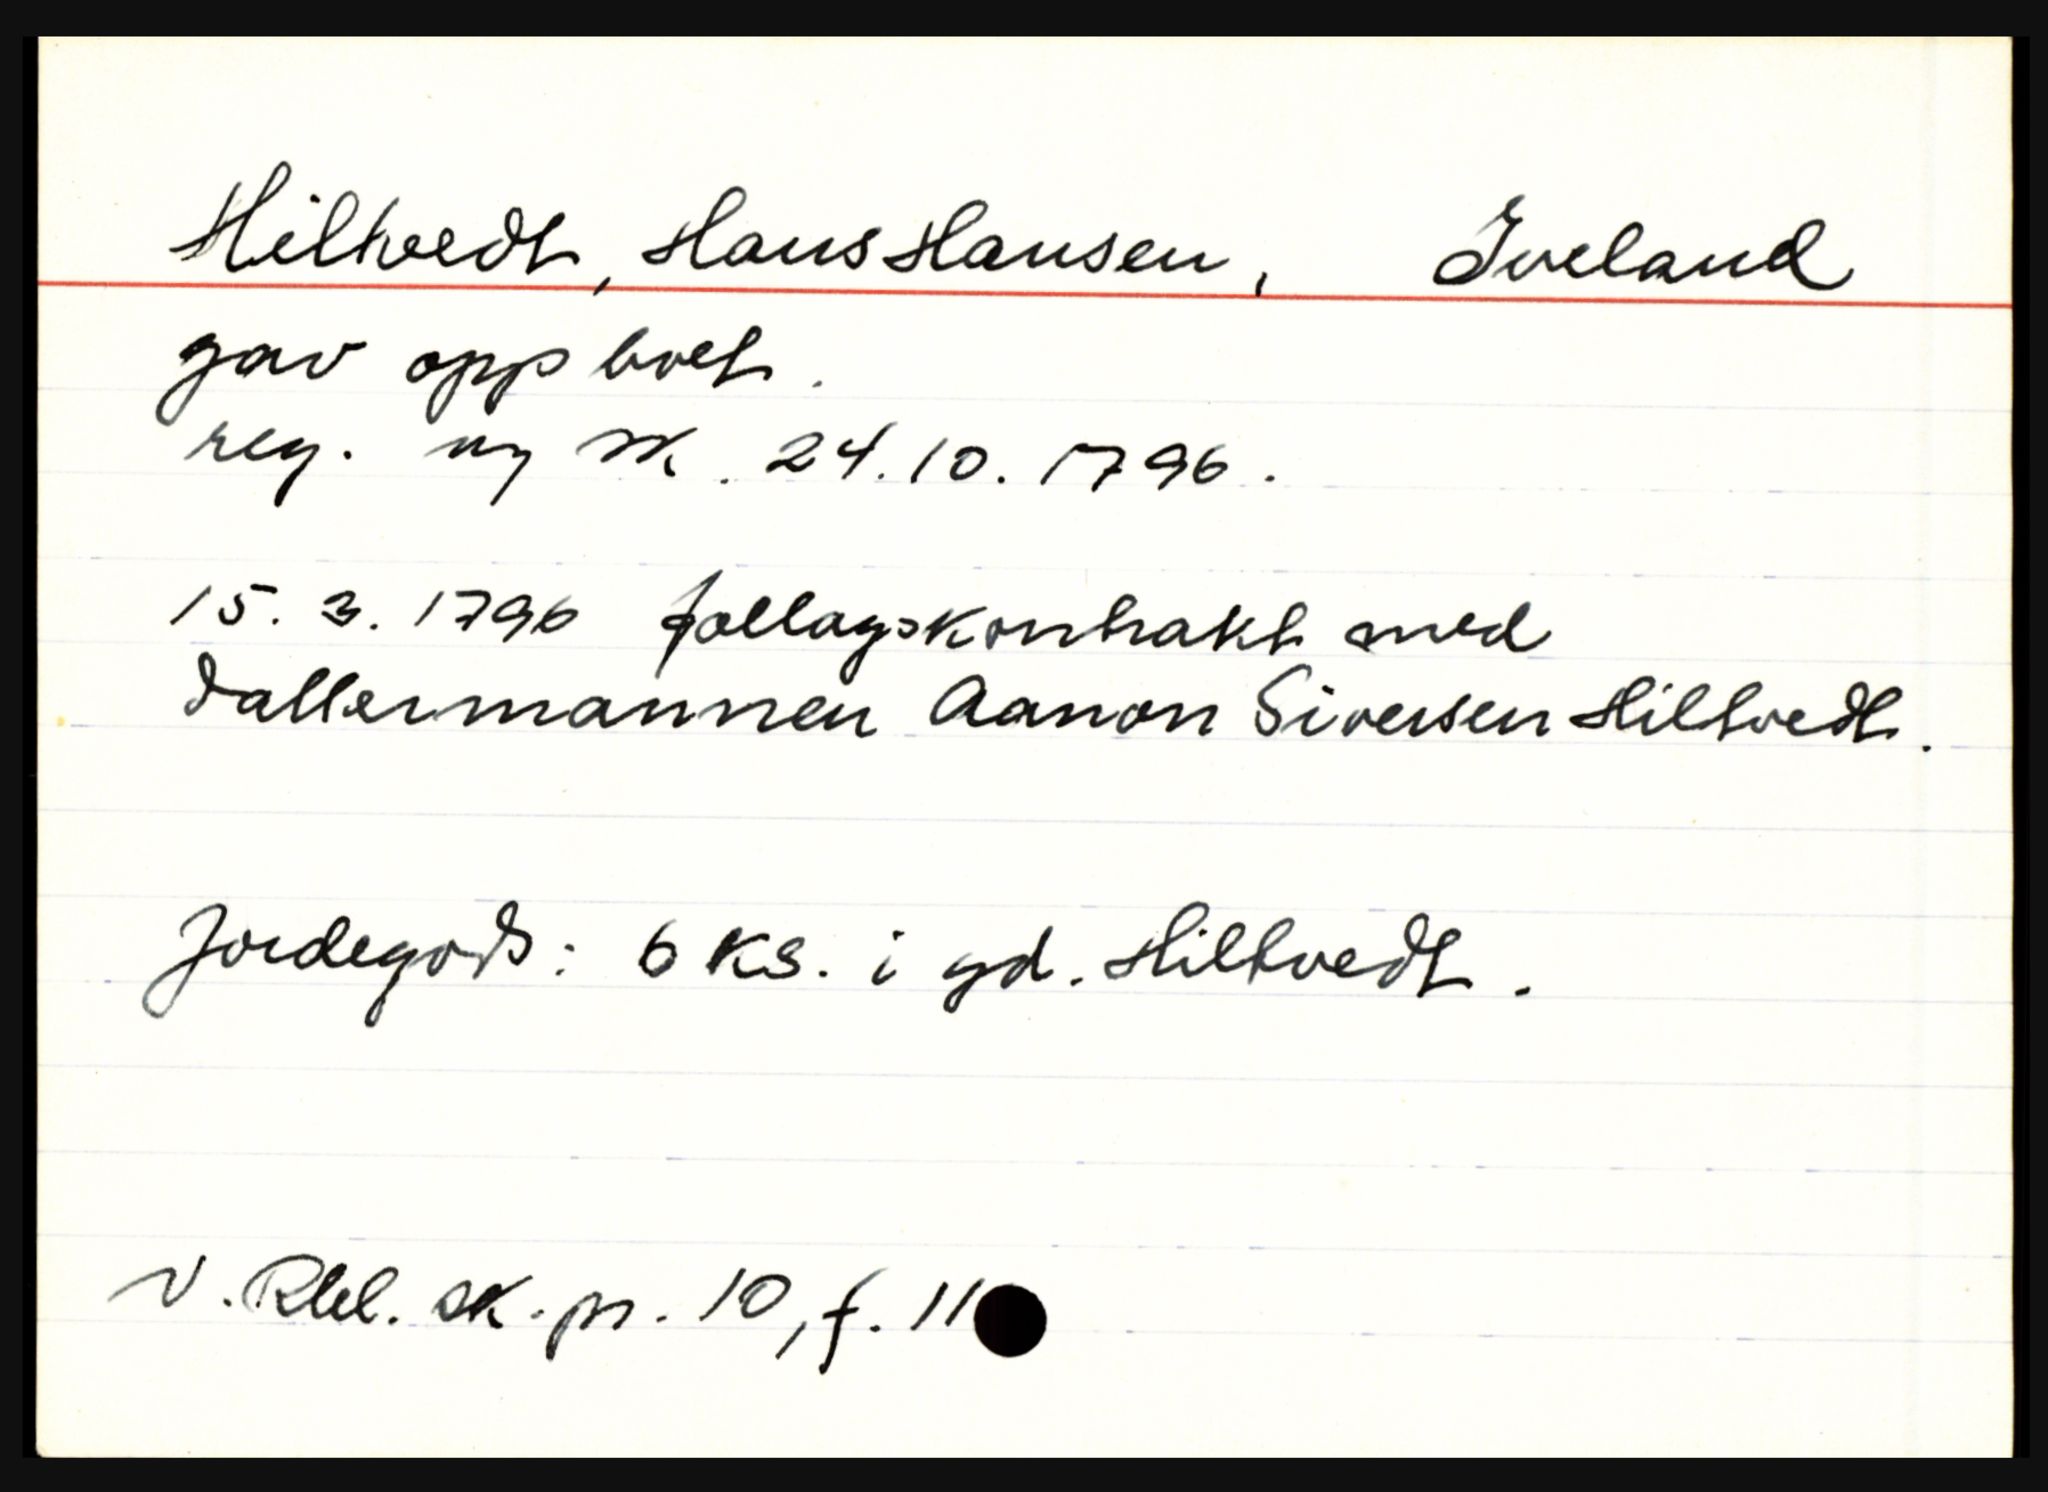 Hiltvedt, Hans Hansen, Iveland
gav opp boet.
reg. og sk. 24.10.1796.
15. 3. 1796 follagskontrakt med
dattermannen Aanon Siversen Hiltvedt.
Jordegods: 6 ks. i gd. Hiltvedt.
N. Rbl. sk. pr. 10, f. 11